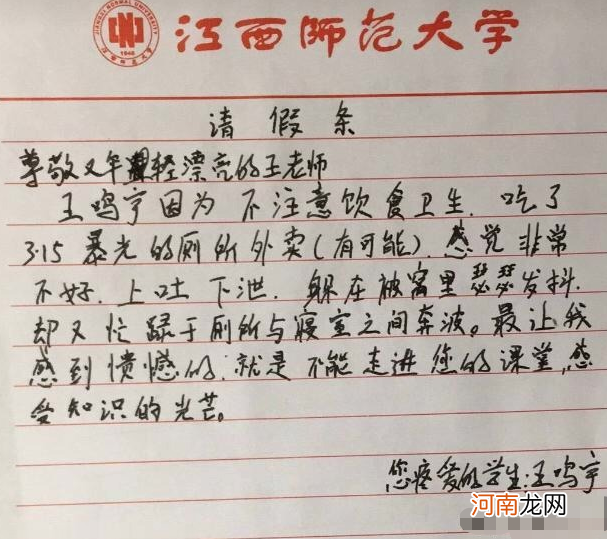 江西师范大学
请假条
尊敬又年轻漂亮的王老师
王鸣宇因为不注意饮食卫生.吃了
3.15暴光的厕所外卖(有可能)感觉非常
不好.上吐下泄.躲在被窝里瑟瑟发抖.
却又忙碌于厕所与寝室之间奔波。最让我
感到愤憾的.就是不能走进您的课堂,感
受知识的光芒。
您疼爱的学生:王鸣宇
河南龙网